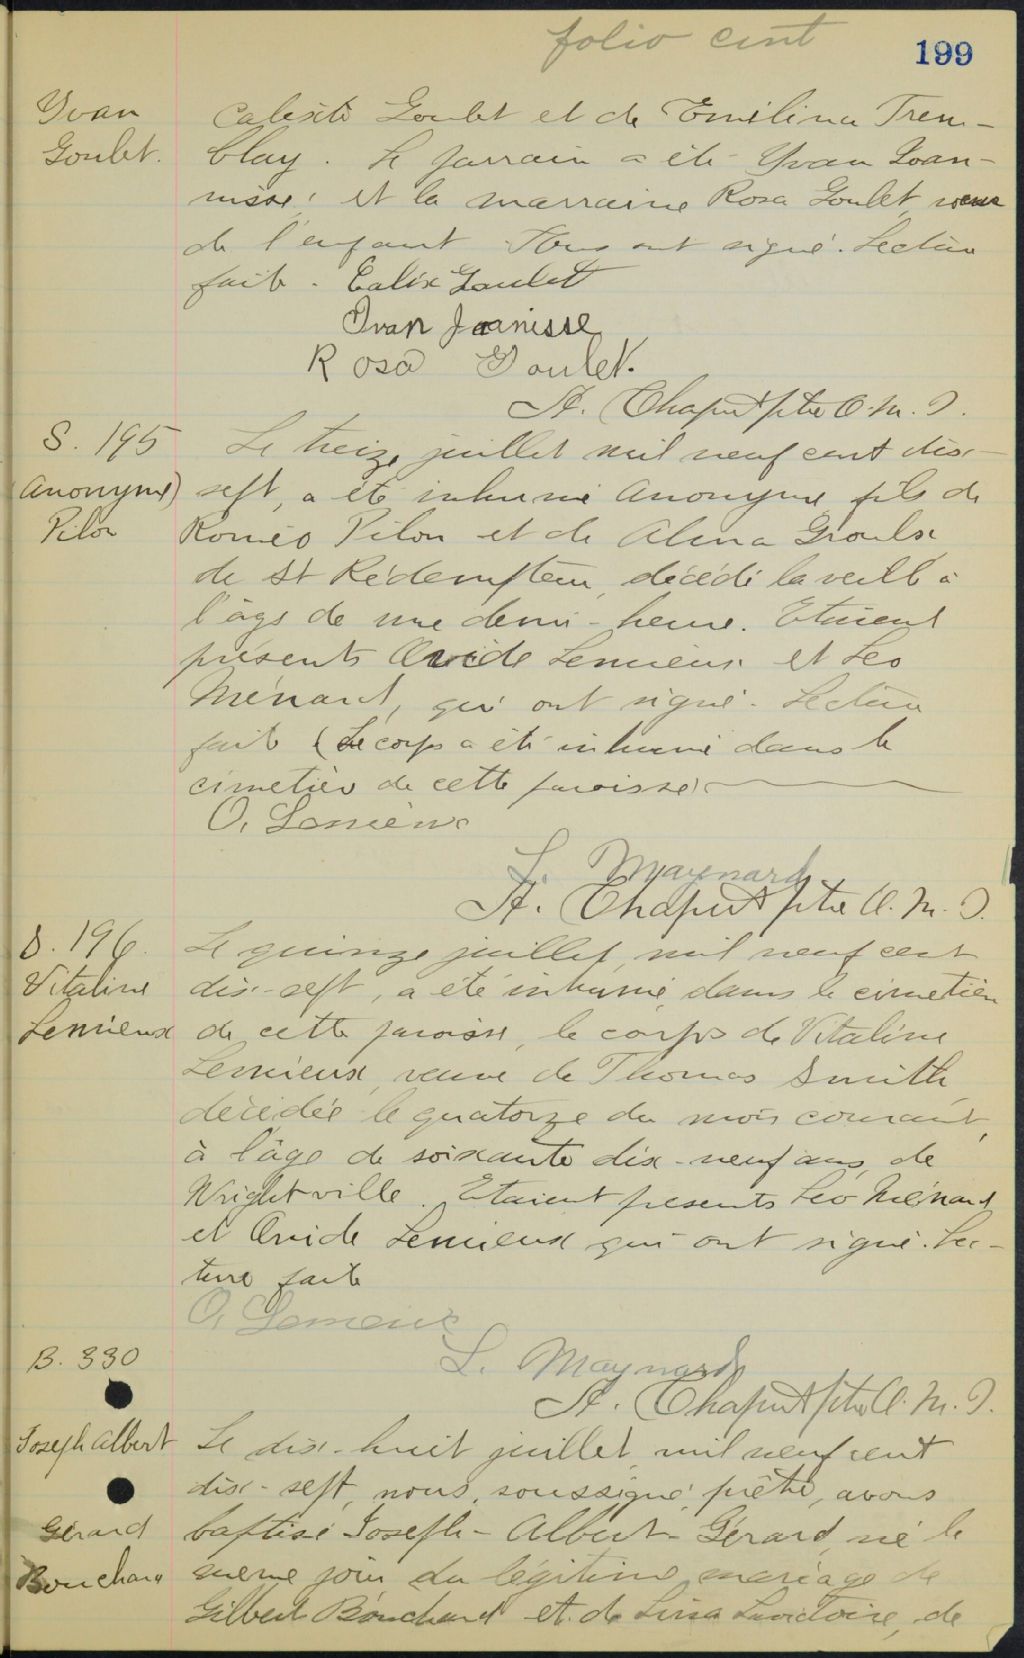 folio cent
199
Yvan
Goulet.
Calixte Goulet et de Emélina Trem-
blay. Le parrain a été Yvan Joan-
nisse, et la marraine Rosa Goulet, soeur
de l'enfant. Tous ont signé. Lecture
faite. Calix Goulett
Ivan Joanisse
Rosa Goulet.
A. Chaput ptre O.M.I.
S. 195
(Anonyme)
Pilon
Le treize juillet mil neuf cent dix-
sept, a été inhumé Anonyme, fils de
Roméo Pilon et de Alma Groulx
de St Rédempteur, décédé la veille à
l'âge de une demi-heure. Etaient
présents Ovide Lemieux et Leo
Ménard, qui ont signé. Lecture
faite (Le corps a été inhumé dans le
cimetière de cette paroisse)
O. Lemieux
L. Maynard
A. Chaput ptre O.M.I.
S. 196.
Vitaline
Lemieux
Le quinze juillet, mil neuf cent
dix-sept, a été inhumé, dans le cimetière
de cette paroisse, le corps de Vitaline
Lemieux, veuve de Thomas Smith
décédée le quatorze du mois courant,
à l'âge de soixante dix-neuf ans, de
Wrightville. Etaient presents Léo Ménard
et Ovide Lemieux qui ont signé. Lec-
ture faite
O. Lemieux
L. Maynard
A. Chaput ptre O.M.I.
B. 330
Joseph Albert
Gérard
Bouchard
Le dix-huit juillet, mil neuf cent
dix-sept, nous, soussigné, prêtre, avons
baptisé Joseph-Albert-Gérard, né le
meme jour du légitime mariage de
Gilbert Bouchard et de Lina, de